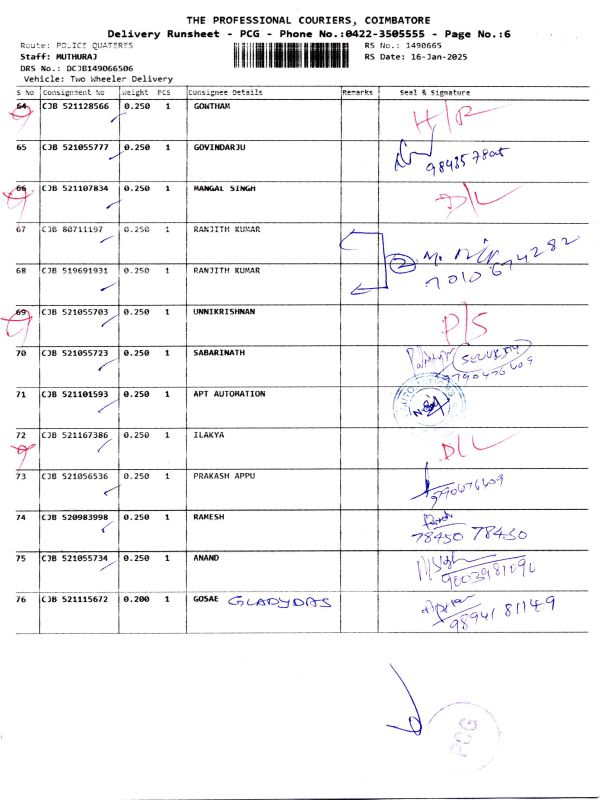 THE PROFESSIONAL COURIERS, COIMBATORE
Delivery Runsheet - PCG - Phone No.:0422-3505555 - Page No.:6
Route: POLICE QUATERES RS No.: 1490665
Staff: MUTHURAJ RS Date: 16-Jan-2025
DRS No.: DCJB149066506
Vehicle: Two Wheeler Delivery
S No Consignment No Weight PCS Consignee Details Remarks Seal & Signature
64 CJB 521128566 0.250 1 GOWTHAM H/R
65 CJB 521055777 0.250 1 GOVINDARJU
66 CJB 521107834 0.250 1 MANGAL SINGH D/L
67 CJB 80711197 0.250 1 RANJITH KUMAR
2
7010674282
68 CJB 519691931 0.250 1 RANJITH KUMAR
69 CJB 521055703 0.250 1 UNNIKRISHNAN P/S
70 CJB 521055723 0.250 1 SABARINATH SECURITY
9790476609
71 CJB 521101593 0.250 1 APT AUTOMATION
72 CJB 521167386 0.250 1 ILAKYA D/L
73 CJB 521056536 0.250 1 PRAKASH APPU
74 CJB 520983998 0.250 1 RAMESH
78450 78450
75 CJB 521055734 0.250 1 ANAND
76 CJB 521115672 0.200 1 GOSAE GLADYDAS
98941 81149
PCG